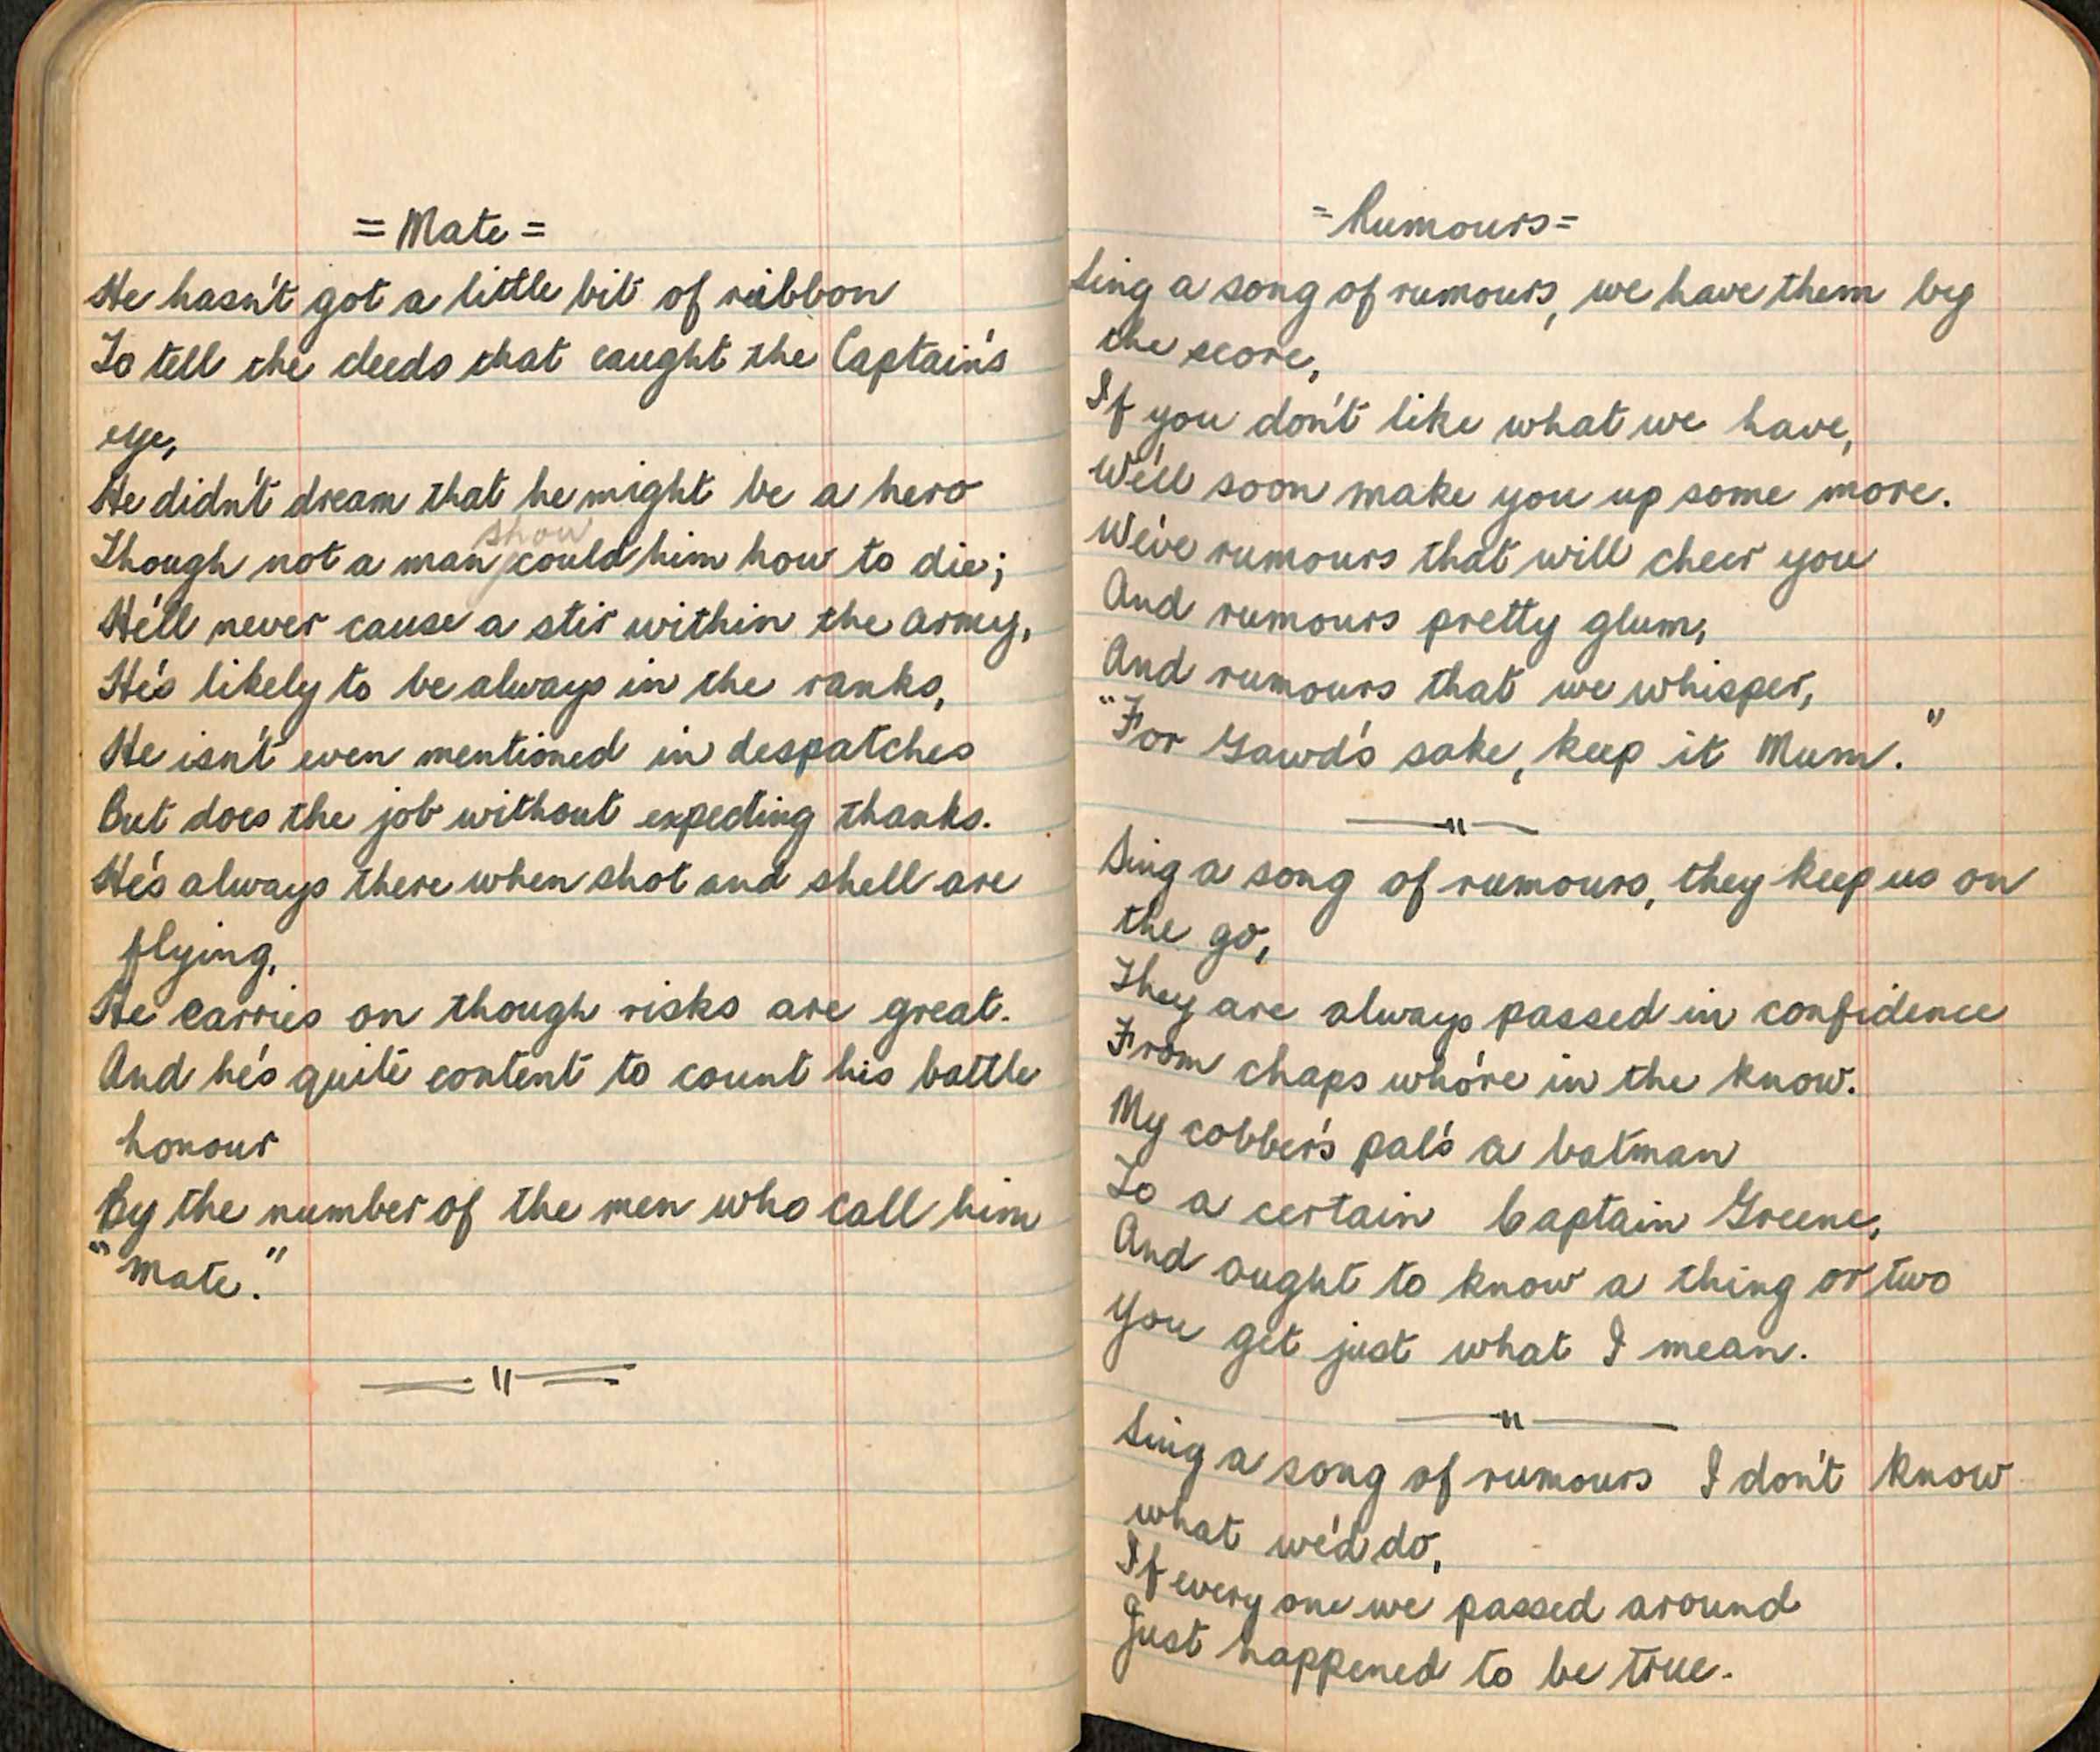 = Mate =
He hasn't got a little bit of ribbon
To tell the deeds that caught the Captain's
eye,
He didn't dream that he might be a hero
show
Though not a man could him how to die;
He'll never cause a stir within the army,
He's likely to be always in the ranks,
He isn't even mentioned in despatches
But does the job without expecting thanks.
He's always there when shot and shell are
flying,
He carries on though risks are great.
And he's quite content to count his battle
honour
By the number of the men who call him
"mate."
= Rumours =
Sing a song of rumours, we have them by
the score,
If you don't like what we have,
We'll soon make you up some more.
We've rumours that will cheer you
And rumours pretty glum,
And rumours that we whisper,
"For Gawd's sake, keep it Mum."
Sing a song of rumours, they keep us on
the go,
They are always passed in confidence
From chaps who're in the know.
My cobber's pal's a batman
To a certain Captain Greene,
And ought to know a thing or two
You get just what I mean.
Sing a song of rumours I don't know
what we'd do,
If every one we passed around
Just happened to be true.